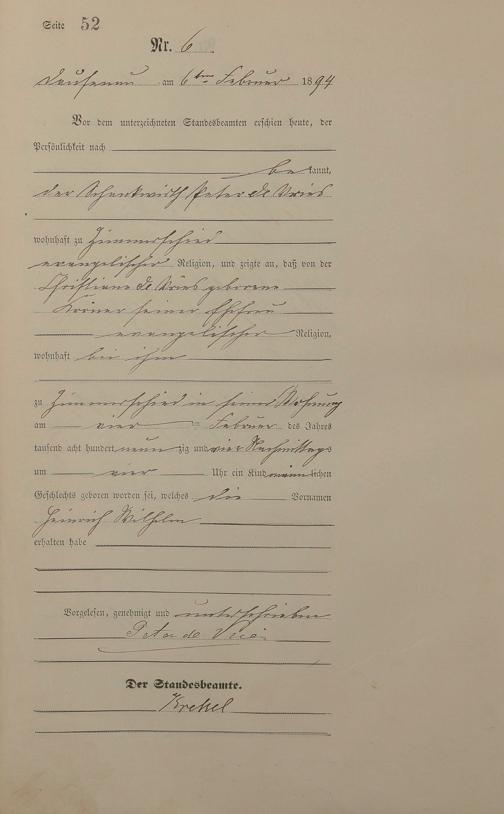 Seite 52
Nr. 6
Dausenau am 6ten Februar 1894
Vor dem unterzeichneten Standesbeamten erschien heute, der
Persönlichkeit nach
bekannt,
der Schenkwirth Peter de Vries
wohnhaft zu Zimmerschied
evangelischer Religion, und zeigte an, daß von der
Christiane de Vries geborene
Korner seiner Ehefrau
evangelischer Religion,
wohnhaft bei ihm
zu Zimmerschied in seiner Wohnung
am vier Februar des Jahres
tausend acht hundert neunzig und vier Nachmittags
um vier Uhr ein Kind männlichen
Geschlechts geboren worden sei, welches die Vornamen
Heinrich Wilhelm
erhalten habe
Vorgelesen, genehmigt und unterschrieben
Peter de Vries
Der Standesbeamte.
Krekel